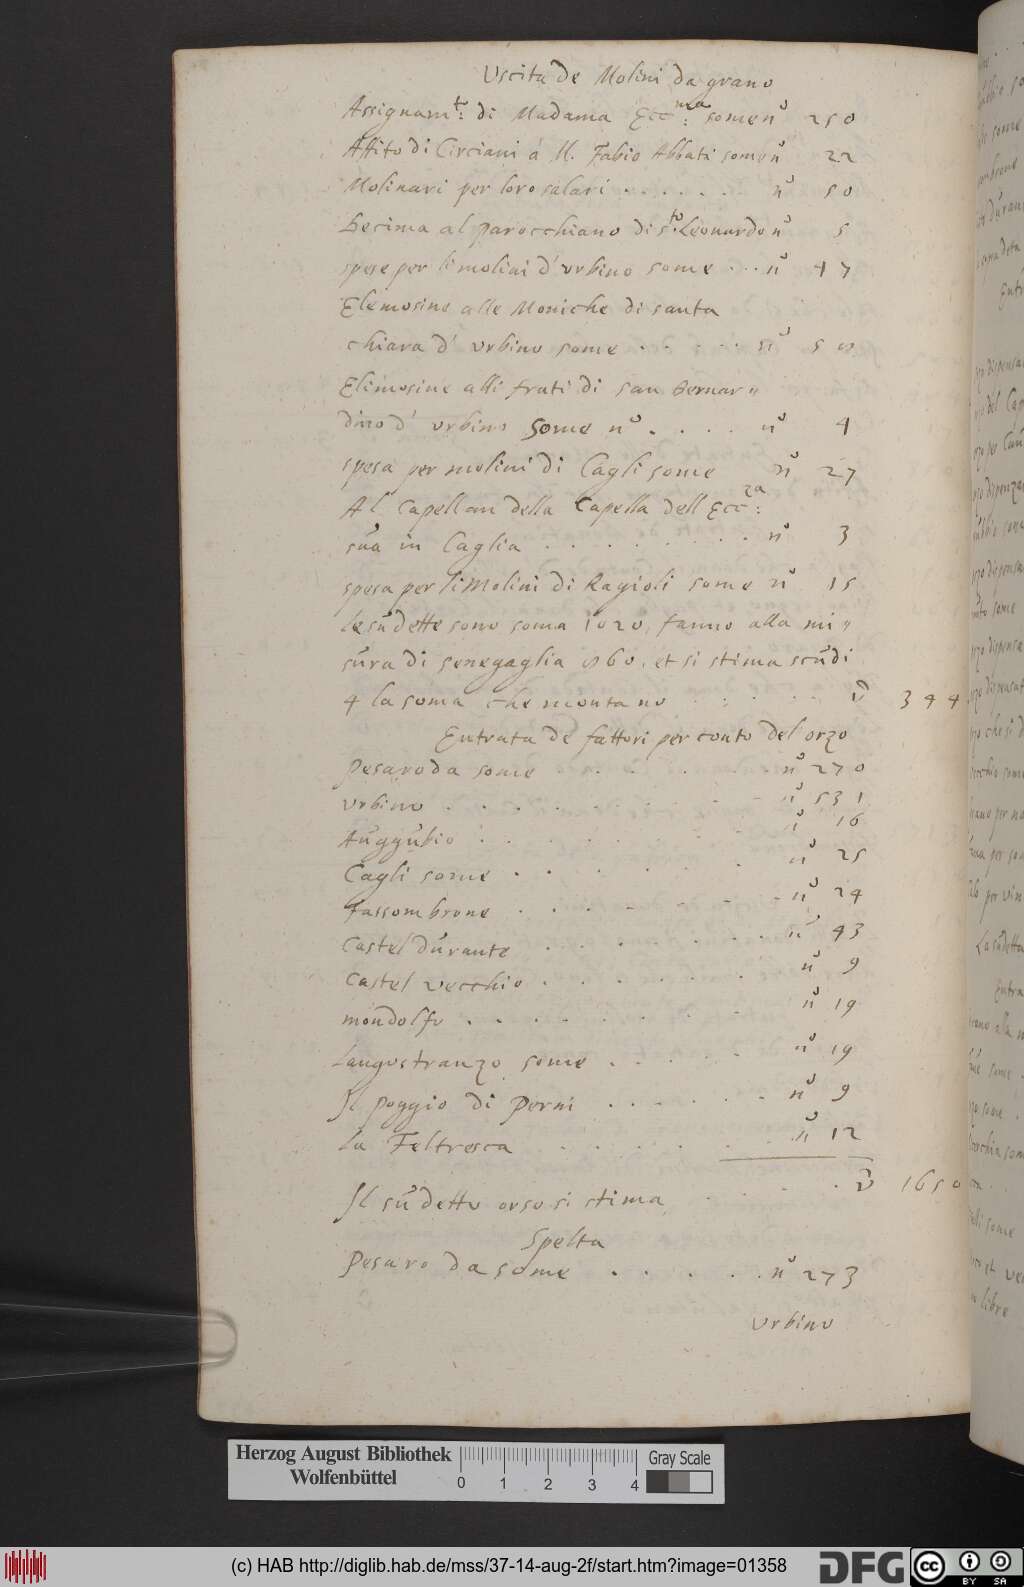 Uscita de Molini da grano
Assignam.to: di Madama Ecc.ma: some nº 250
Affito di Circiani à M. Fabio Abbati some nº 22
Molinari per loro salari . . . . . . nº 50
Decima al parocchiano di s.to Leonardo nº 5
spese per li molini d' urbino some . . . nº 47
Elemosine alle Moniche di santa
chiara d' urbino some . . . . . nº
Elimosine alli frati di san Bernar〃
dino d' urbino some nº . . . . nº 4
spesa per molini di Cagli some nº 27
Al Capellan della Capella dell Ecc.za:
sua in Caglia . . . . . . . . . nº 3
spesa per li Molini di Ragioli some nº 15
le sudette sono soma 1020, fanno alla mi〃
sura di senegaglia 860. et si stima scudi
4 la soma che montano . . . . . . 344
Entrata de fattori per conto del' orzo
Pesaro da some . . . . . nº 270
urbino . . . . . . . . . nº 531
Auggubio . . . . . . . nº 16
Cagli some . . . . . . nº 25
fassombrone . . . . . . . nº 24
Castel durante . . . . . . . nº 43
Castel vecchio . . . . . . . nº 9
mondolfo . . . . . . . . nº 19
Langostranzo some . . . . . nº 19
Il poggio di Perni . . . . . . nº 9
la Feltresca . . . . . . . nº 12
Il sudetto orso si stima . . . . . 1650
Spelta
Pesaro da some . . . . . . nº 273
urbino
Herzog August Bibliothek
Wolfenbüttel
0 1 2 3 4
Gray Scale
(c) HAB http://diglib.hab.de/mss/37-14-aug-2f/start.htm?image=01358
DFG
cc BY SA